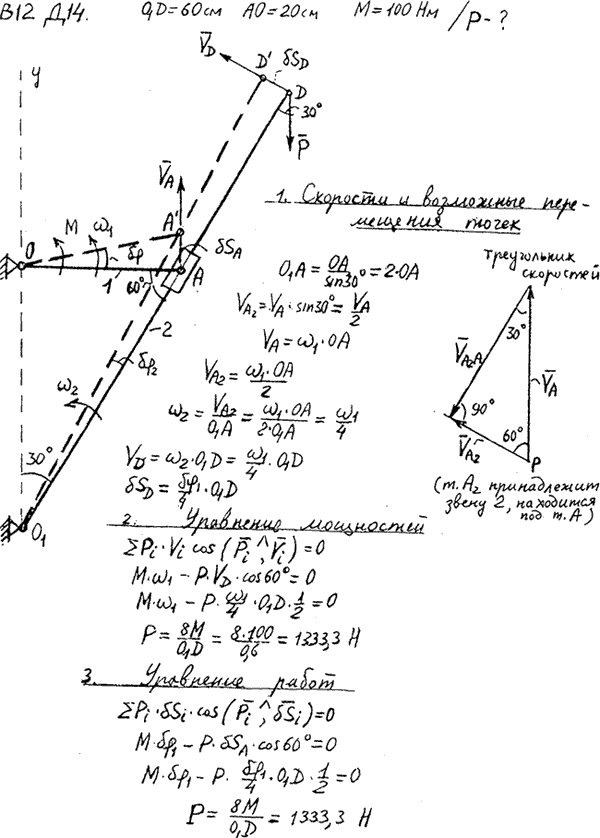 В12 Д14. O₁D=60см АО=20см М=100 Нм /Р-?
y
V̄_D
D'
δS_D
D
30°
P̄
V̄_A
M
ω₁
A'
δφ
δS_A
O
1
60°
A
2
δφ₂
ω₂
30°
O₁
1. Скорости и возможные пере-
мещения точек
O₁A = OA/sin30° = 2·OA
V_A₂ = V_A · sin30° = V_A/2
V_A = ω₁·OA
V_A₂ = ω₁·OA/2
ω₂ = V_A₂/O₁A = ω₁·OA/2·O₁A = ω₁/4
V_D = ω₂·O₁D = ω₁/4·O₁D
δS_D = δφ₁/4·O₁D
треугольник
скоростей
30°
V̄_A₂A
V̄_A
90°
60°
V̄_A₂
P
(т. A₂ принадлежит
звену 2, находится
под т. А)
2. Уравнение мощностей
ΣPᵢ·Vᵢ cos(P̄ᵢ^V̄ᵢ)=0
M·ω₁ – P·V_D·cos60°=0
M·ω₁ – P·ω₁/4·O₁D·1/2=0
P = 8M/O₁D = 8·100/0,6 = 1333,3 Н
3. Уравнение работ
ΣPᵢ·δSᵢ·cos(P̄ᵢ^δS̄ᵢ)=0
M·δφ₁ – P·δS_A·cos60°=0
M·δφ₁ – P·δφ₁/4·O₁D·1/2=0
P = 8M/O₁D = 1333,3 Н